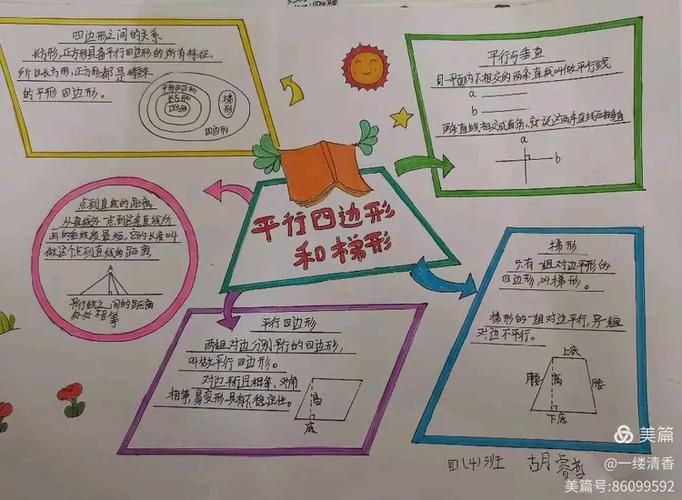 四边形之间的关系
长方形,正方形具备平行四边形的所有特征,
所以长方形,正方形都是特殊
的平行四边形。
平行四边形
长方形
正方形
梯形
四边形
平行与垂直
同一平面内不相交的两条直线叫做平行线
a
b
两条直线相交成直角,就说这两条直线互相垂直
a
b
点到直线的距离
从直线外一点到这条直线所
画的垂线段最短,它的长度叫
做这个点到直线的距离
平行线之间的距离
处处相等
平行四边形
和梯形
平行四边形
两组对边分别平行的四边形,
叫做平行四边形。
对边平行且相等,对角
相等,易变形具有不稳定性。
高
底
梯形
只有一组对边平行的
四边形,叫梯形。
梯形的一组对边平行,另一组
对边不平行。
上底
腰
高
腰
下底
四(4)班 胡睿哲
美篇
@一缕清香
美篇号:86099592